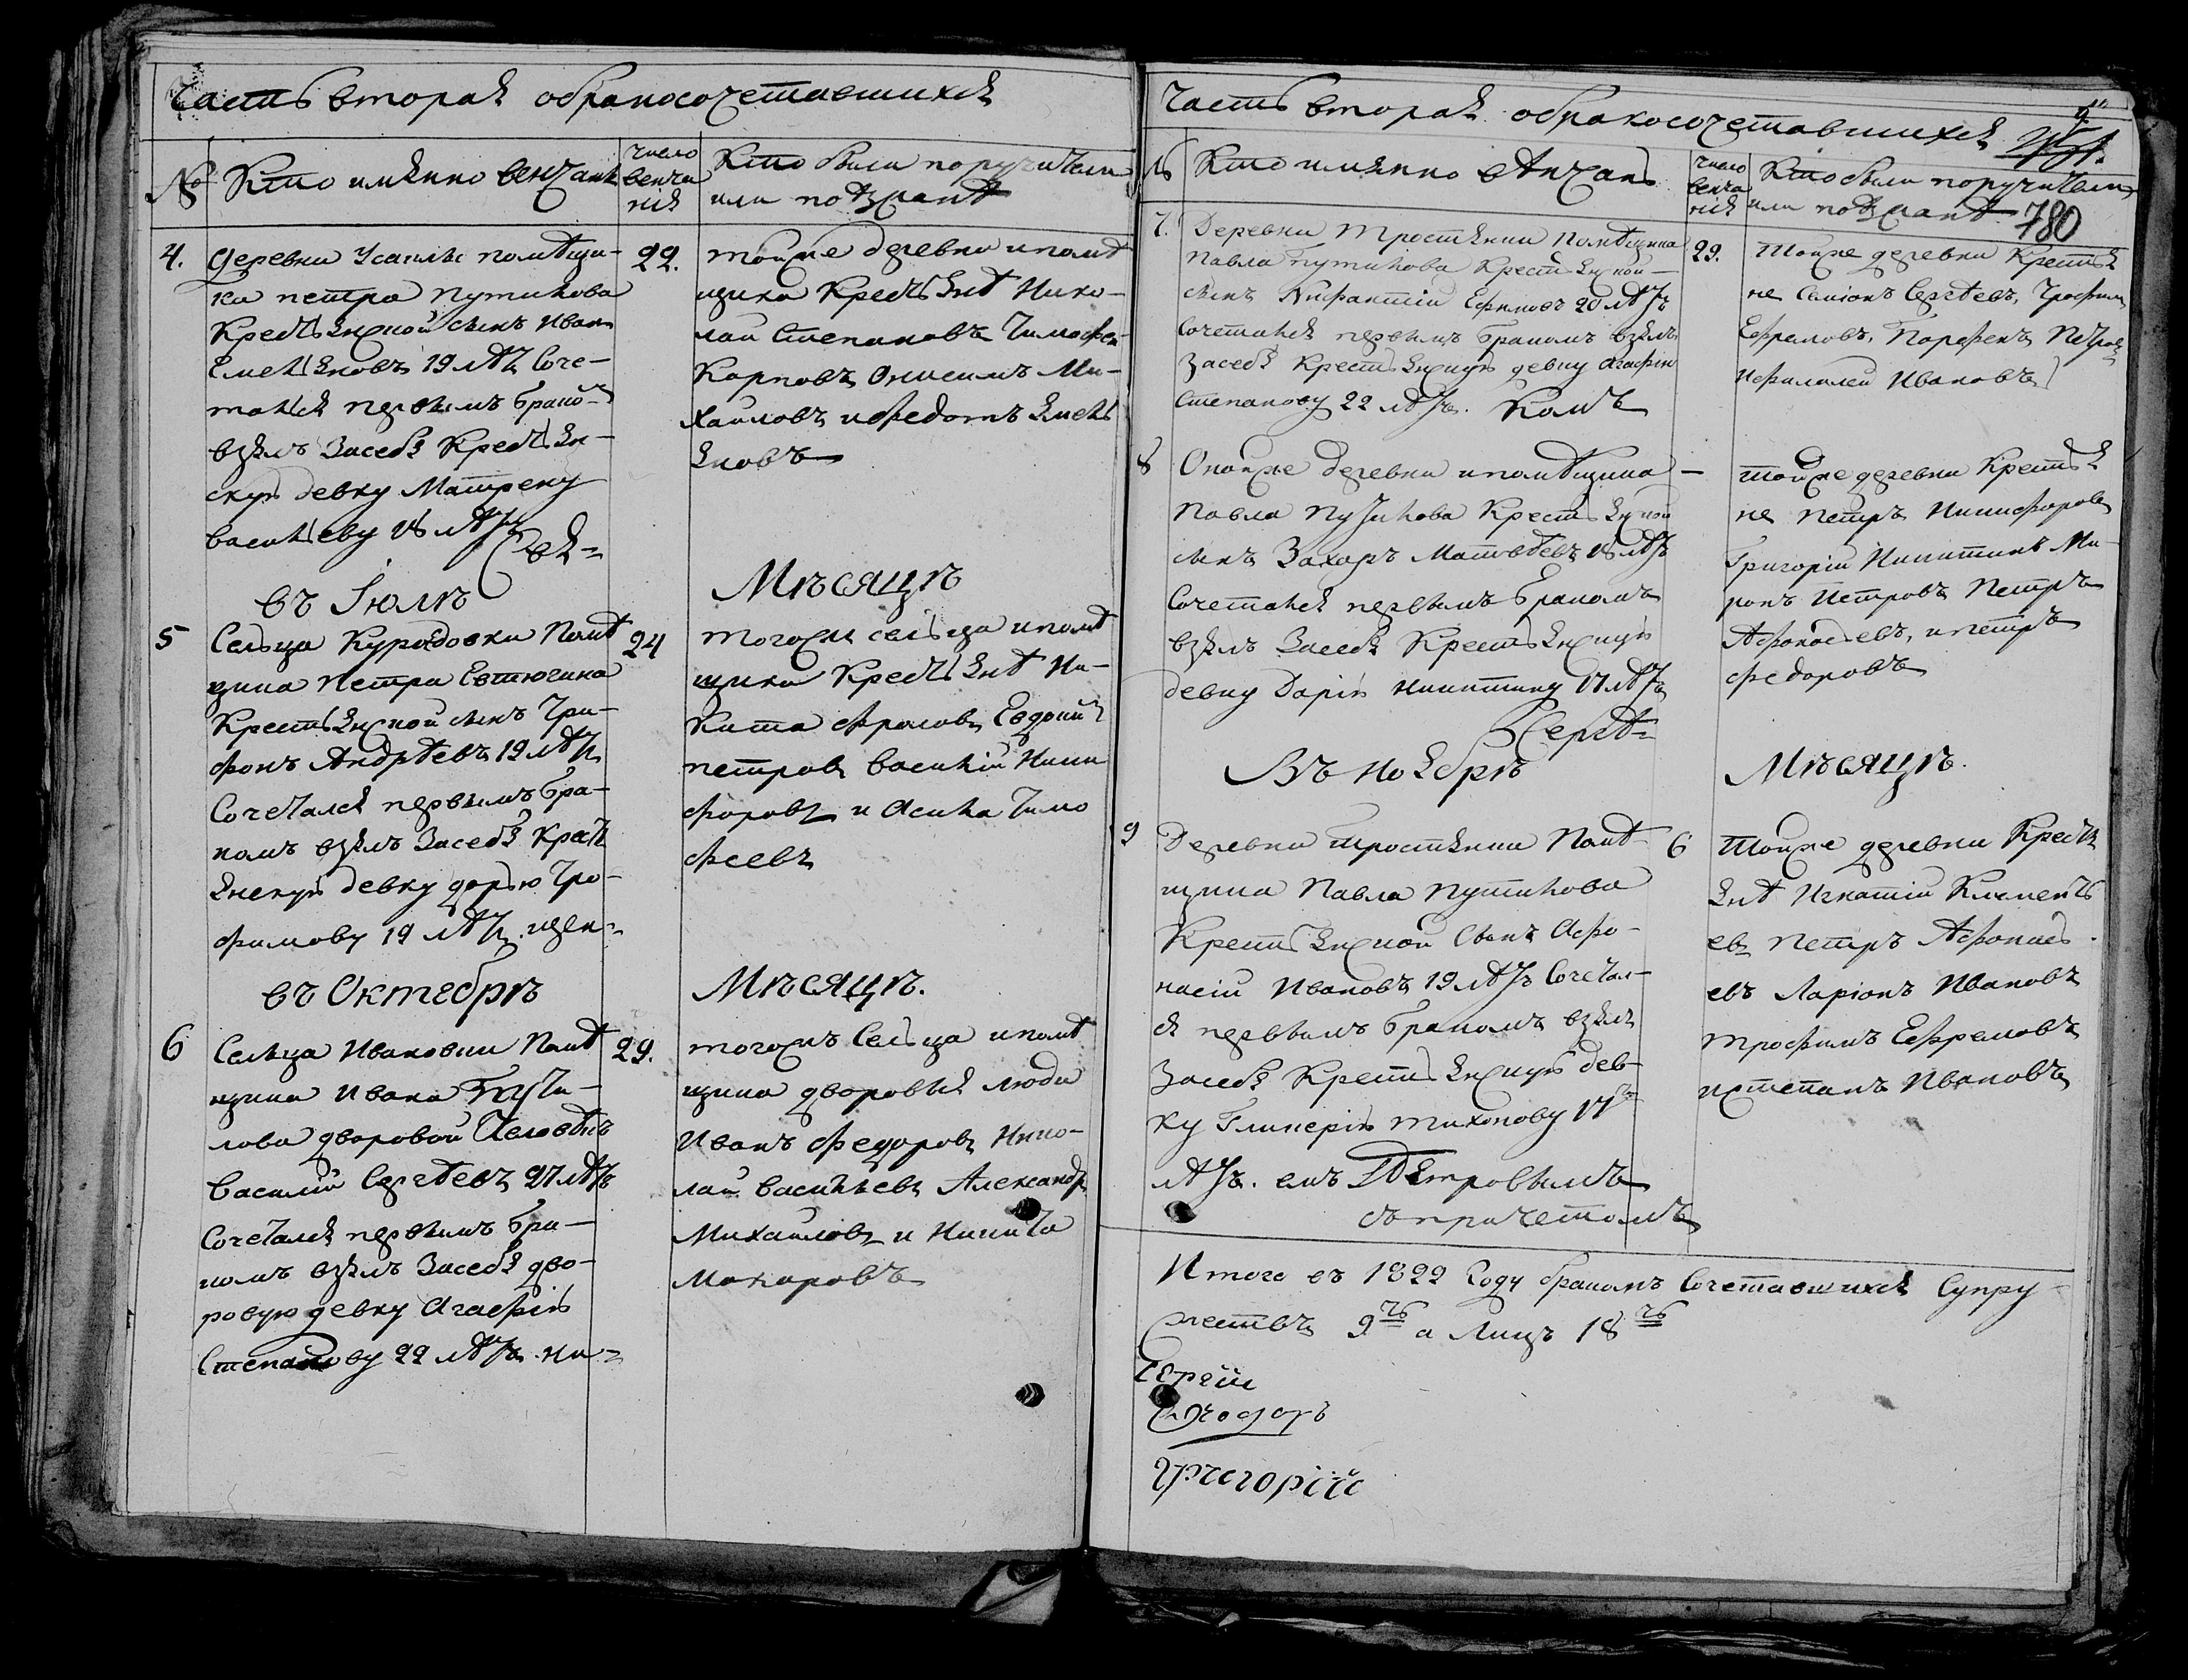 Часть вторая обракосочетавшихся
№ Кто имянно венчанъ
число венчания
Кто были поручители
или поѣзжанѣ
4. Деревни Усаилье помѣщи-
ка петра Путилова
Крестьянской сынъ Иванъ
Емельяновъ 19 лѣтъ Соче-
тался первымъ бракомъ
взялъ засебя Крестьян-
скую девку Матрену
васильеву 18 лѣтъ
Свя=
22.
тойже деревни ипомѣ
щика Крестьянѣ Нико-
лай Степановъ Тимофей
Карповъ Онисимъ Ми-
хайловъ иФедотъ Емель
яновъ
въ Iюлѣ Мѣсяцѣ
5 Сельца Куроедовки Помѣ
щика Петра Евтюгина
Крестьянской сынъ Три-
фонъ Андрѣевъ 19 лѣтъ
Сочетался первымъ бра-
комъ взялъ засебя Крест
янскую девку дарью Тро-
фимову 19 лѣтъ. щен=
24
тогоже сельца ипомѣ
щика Крестьянѣ Ни-
кита Фролов Евдоким
петров василий Ники
форовъ и Тимо
феевъ
въ Октебрѣ Мѣсяцѣ.
6 Сельца Ивановки Помѣ
щика Ивана Пути-
лова дворовой Человѣкъ
василий Сергѣевъ 27 лѣтъ
Сочетался первымъ бра-
комъ взялъ Засебя дво-
ровую девку Агафию
Степанову 22 лѣтъ. ни=
29.
тогожъ Сельца ипомѣ
щика дворовыя люди
Иванъ Федоровъ Нико-
лай васильевъ Александръ
Михаиловъ и Никита
Макаровъ
Часть вторая обракосочетавшихся
№ Кто имянно вѣнчанъ
число венчания
Кто были поручители
или поѣзжанѣ 780
7. Деревни Тростянки Помѣщика
Павла Путилова Крестьянской
сынъ Ефимовъ 20 лѣтъ
Сочетался первымъ бракомъ взялъ
Засебя Крестьянскую девку Агафию
Степанову 22 лѣтъ. Комъ
29.
Тойже деревни Крестья
не Семіонъ Сергѣевъ, Трофимъ
Ефремовъ, Парфенъ Петров
иФилалей Ивановъ
8 Онойже деревни ипомѣщика
Павла Путилова Крестьянской
сынъ Захаръ Матвѣевъ 18 лѣтъ
Сочетался первымъ бракомъ
взялъ Засебя Крестьянскую
девку Дарію Никитину 17 лѣтъ
Сергѣ=
—
тойже деревни Крестья
не Петръ Никифоровъ
Григорій Никитинъ Ми-
ронъ Петровъ Петръ
Афонасьевъ, ипетръ
Федоровъ
Въ ноябрѣ Мѣсяцѣ.
9 Деревни Тростянки Помѣ-
щика Павла Путилова
Крестьянской Сынъ Афо-
насій Ивановъ 19 лѣтъ Сочетал-
ся первымъ бракомъ взялъ
Засебя Крестьянскую дев-
ку Гликерію тихонову 17
лѣтъ. емъ Пѣтровымъ
съ причетомъ
6
Тойже деревни Кресть
янѣ Игнатій Клементь
евъ Петръ Афонась
евъ Ларіонъ Ивановъ
трофимъ Ефремовъ
истепанъ Ивановъ
Итого въ 1822 Году бракомъ Сочетавшихся Супру-
жествъ 9ть а Лицъ 18ть
Сергій
Григорій